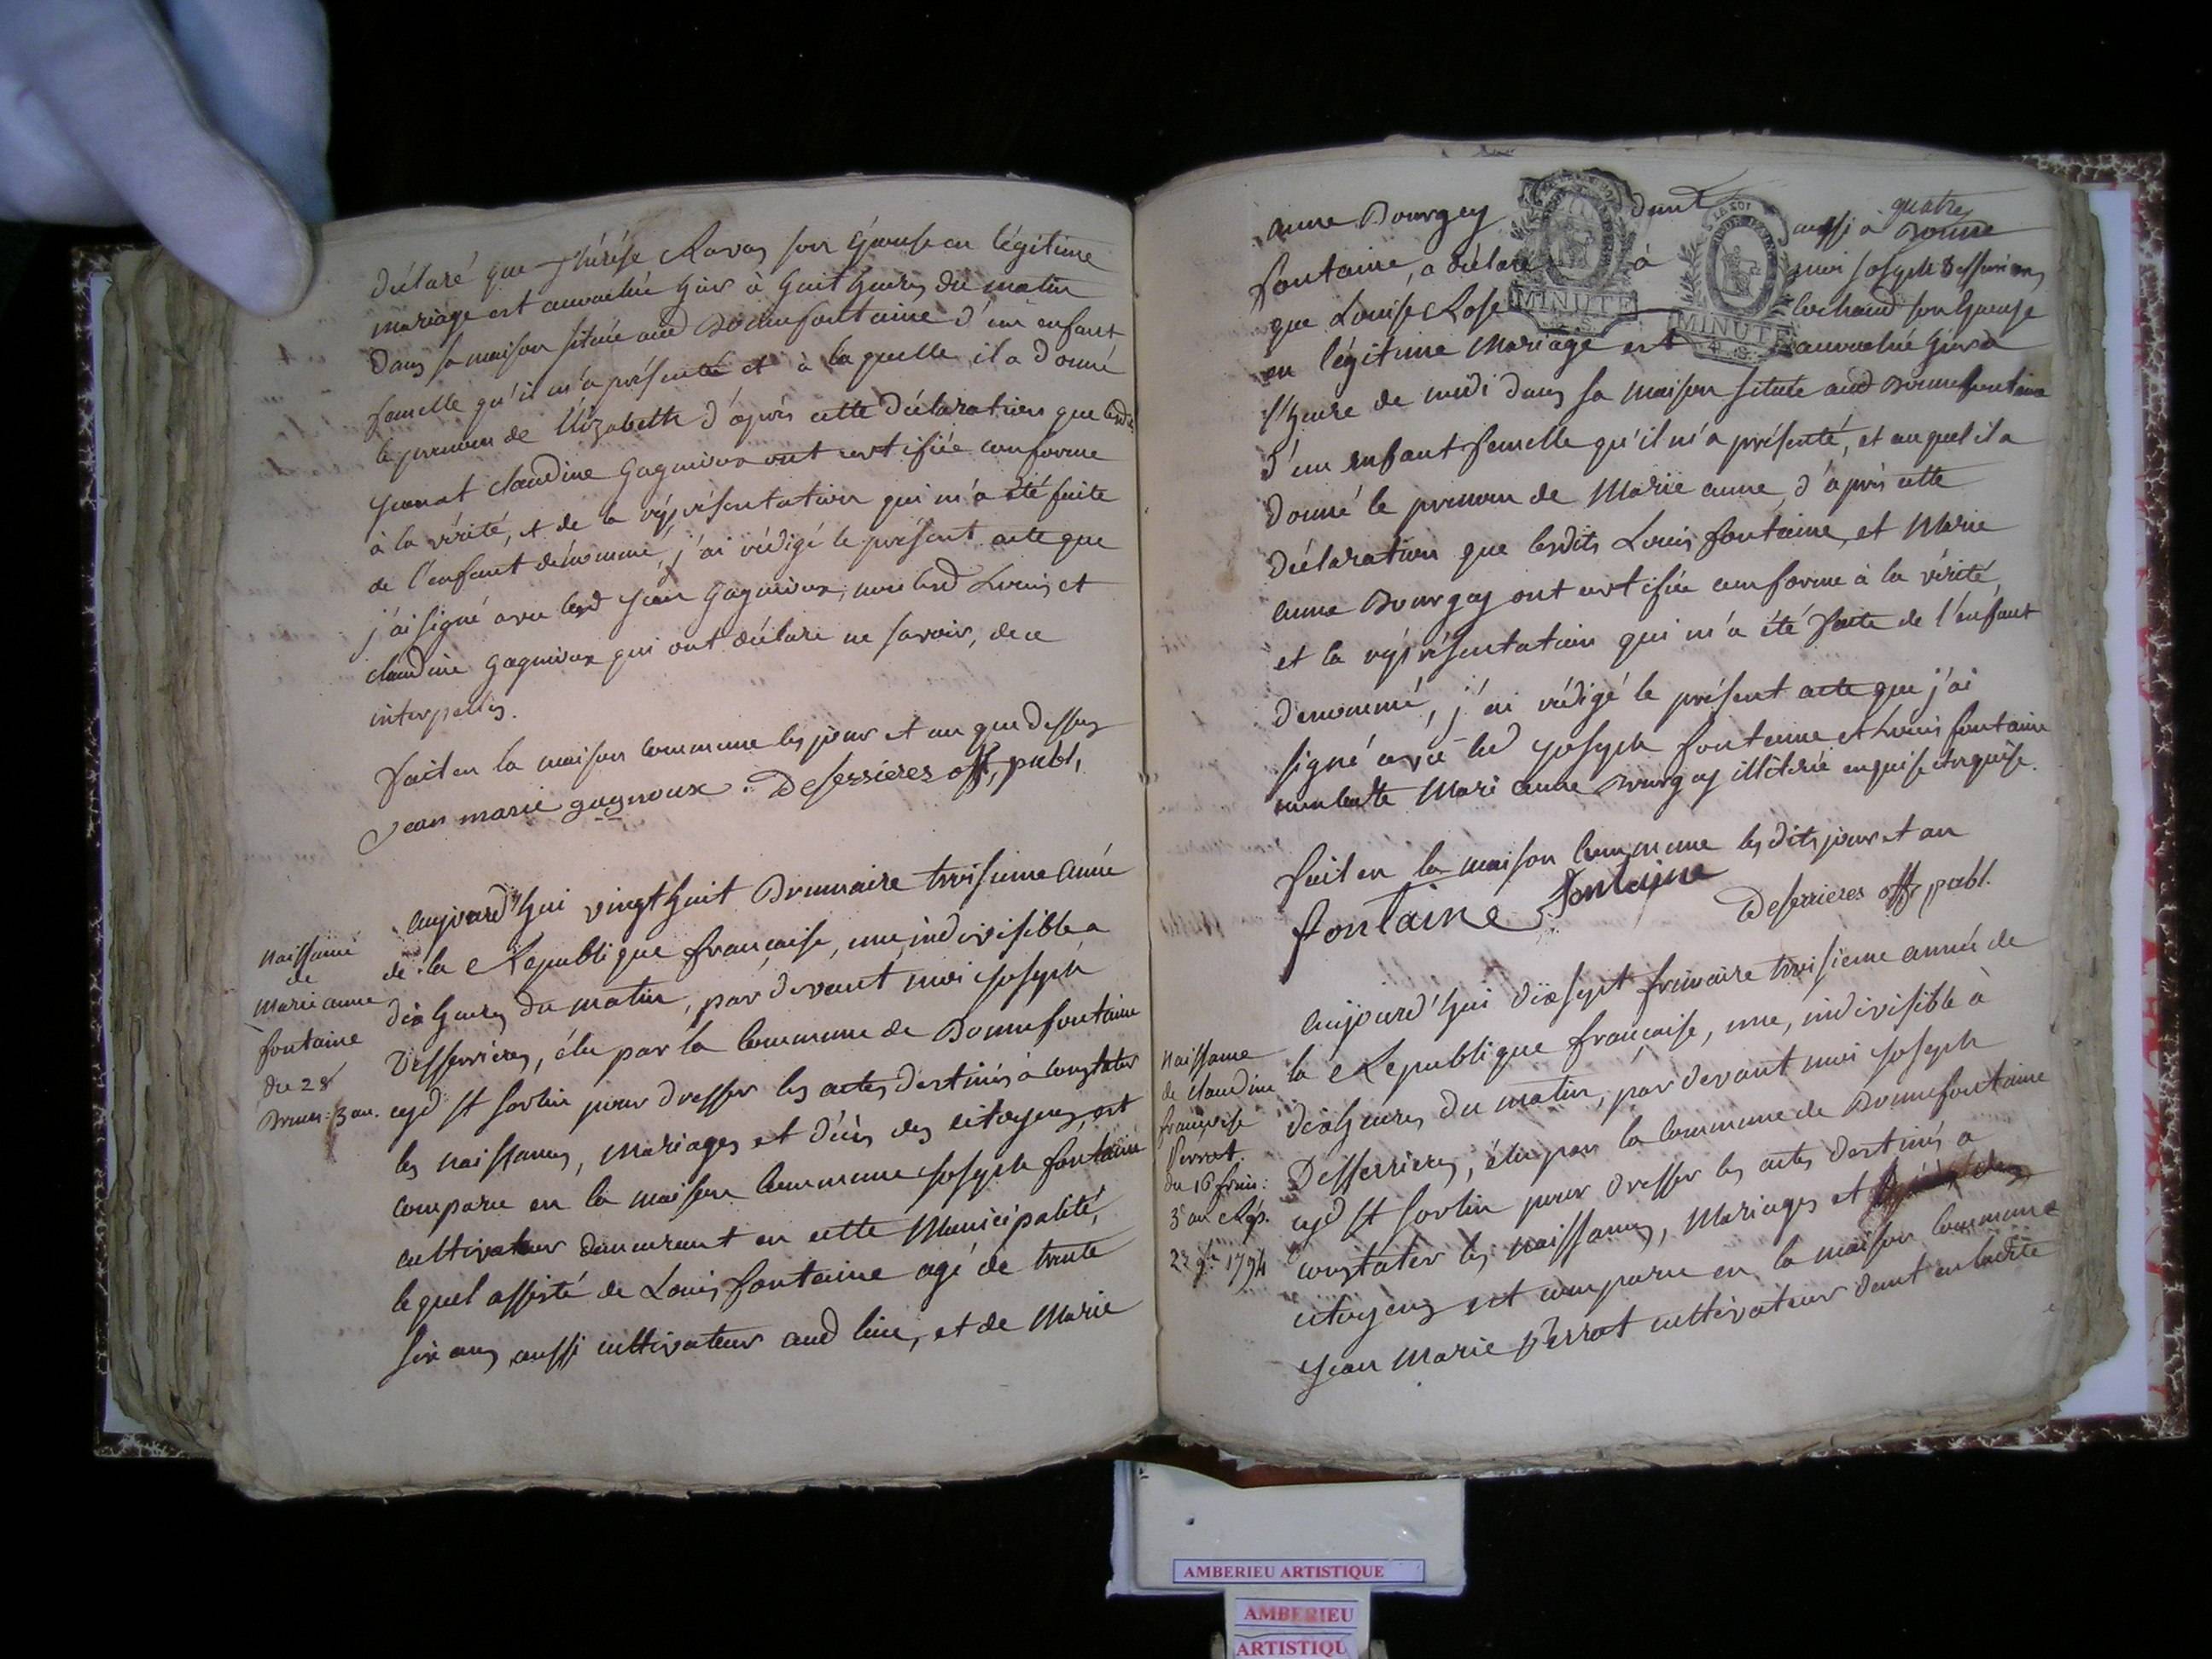 déclaré que Thérése Ravas son épouse en légitime
mariage est accouchée hier à huit heures du matin
dans sa maison située aud Bonnefontaine d'un enfant
femelle qu'il m'a présenté et à laquelle il a donné
le prenom de Elizabeth d'après cette déclaration que lesd
Jean et claudine Gagnioux ont certifiée conforme
à la vérité, et de la réprésentation qui m'a été faite
de l'enfant dénommé, j'ai rédigé le présent acte que
j'ai signé avec led Jean Gagnioux, non lesd Louis et
claudine Gagnioux qui ont déclaré ne savoir, de ce
interpellés.
fait en la maison commune les jour et an que dessus
Jean marie gagnoux. Deserrieres off, publ,
Naissance
de
Marie anne
fontaine
du 28
Brum: 3 an.
aujourd'hui vingt huit Brumaire troisieme année
de la République française, une, indivisible a
dix heures du matin, par devant moi Joseph
Desserrieres, élu par la Commune de Bonnefontaine
cyd St Sorlin pour dresser les actes destinés à constater
les naissances, mariages et décès des citoyens, est
comparu en la maison commune Joseph fontaine
cultivateur demeurant en cette Municipalité,
lequel assisté de Louis fontaine agé de trente
six ans, aussi cultivateur aud lieu, et de Marie
anne Bourgey dant aussi à quatre Bonne
fontaine, a déclaré à moi Joseph Desserrieres
que Louise Rose Cochaud son épouse
en légitime Mariage est accouchée hier à
l'heure de midi dans sa maison située aud Bonnefontaine
d'un enfant femelle qu'il m'a présenté, et auquel il a
donné le prenom de Marie anne, d'après cette
déclaration que lesdits Louis fontaine, et Marie
anne Bourgey ont certifiée conforme à la vérité
et la réprésentation qui m'a été faite de l'enfant
denommé, j'ai rédigé le présent acte que j'ai
signé avec led Joseph fontaine et Louis fontaine
non ladte Marie anne Bourgey illitérée enquise et requise.
fait en la maison Commune lesdits jour et an
fontaine fontaine
Deserrieres off publ.
Naissance
de claudine
françoise
Perrot.
du 16 frim:
3e an Rép.
22 9bre 1794
aujourd'hui dix sept frimaire troisieme année de
la République française, une, indivisible à
dix heures du matin, par devant moi Joseph
Desserrieres, élu par la Commune de Bonnefontaine
cyd St Sorlin pour dresser les actes destinés a
constater les naissances, Mariages et décès des
citoyens est comparu en la maison commune
Jean Marie Perrot cultivateur dant en ladite
MINUTE
MINUTE
LA LOI
4 S.
AMBERIEU ARTISTIQUE
AMBERIEU
ARTISTIQU